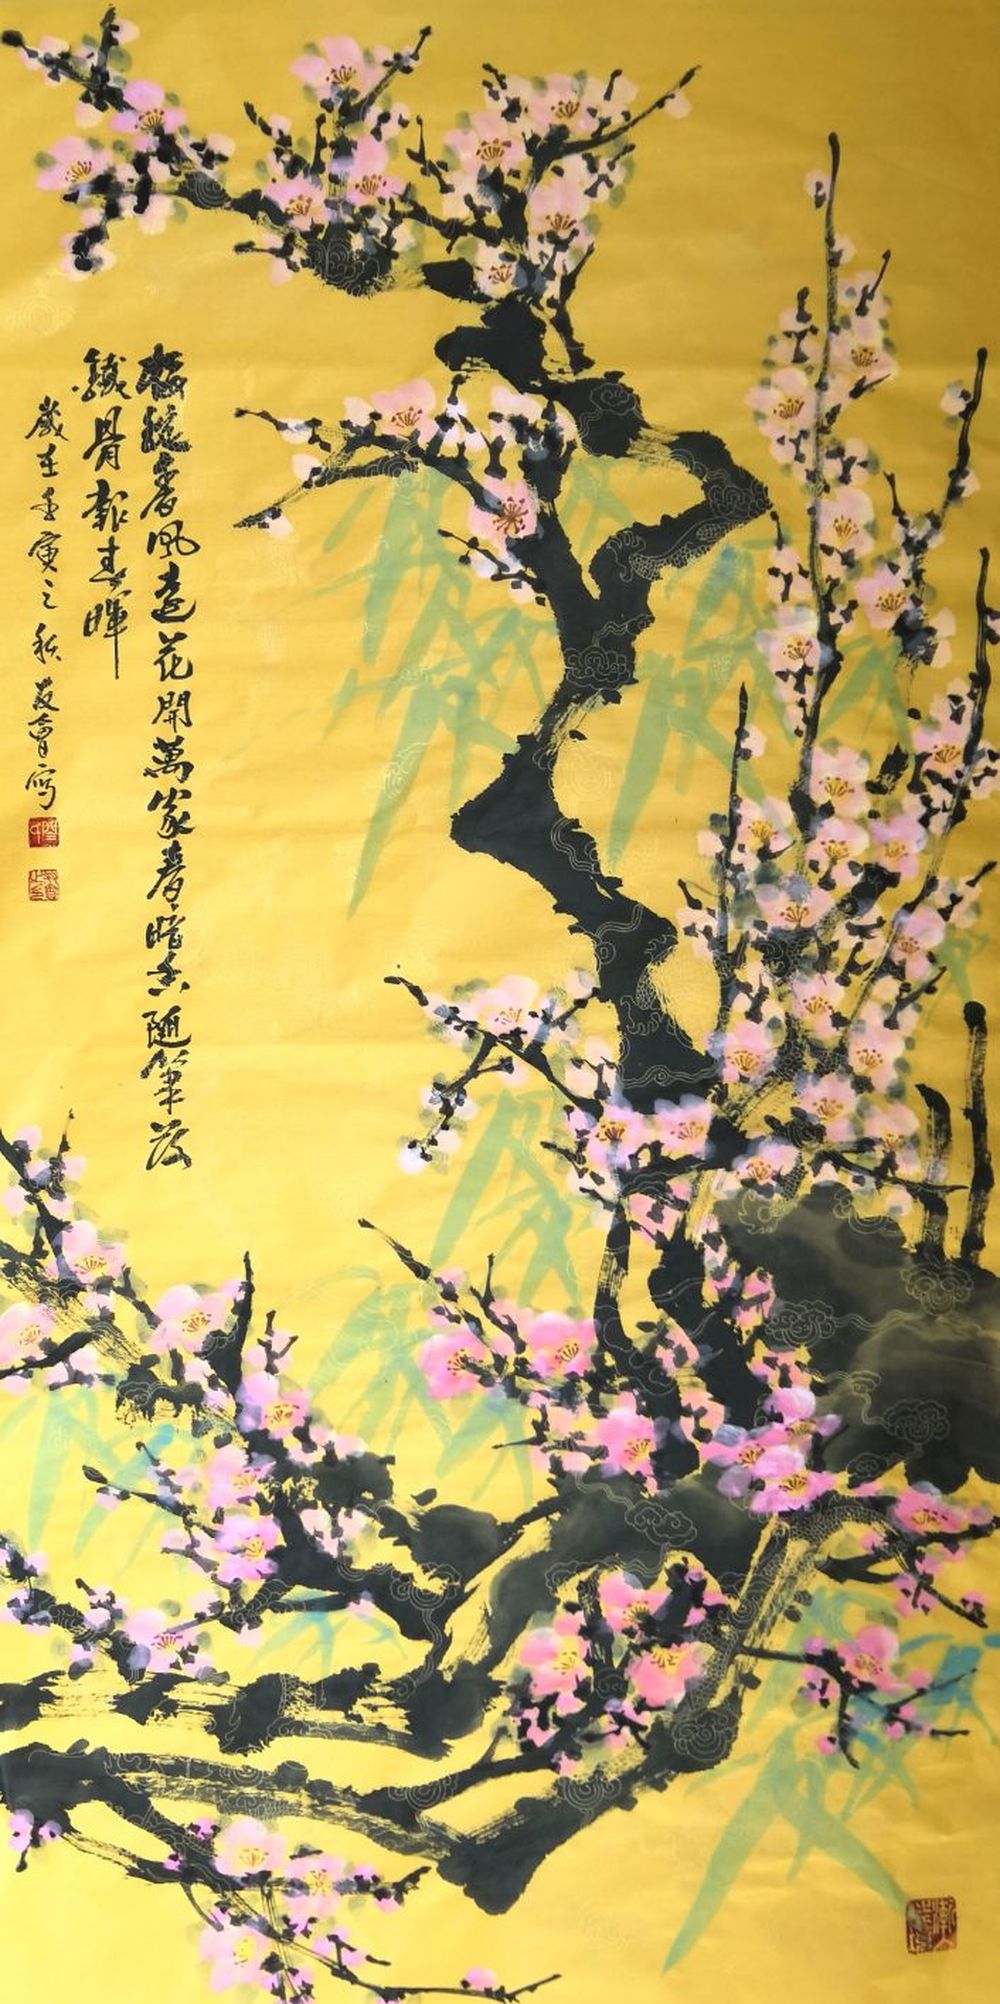 梅绽春风远花開萬家春暗香随筆落
鐵骨報春暉
歲在壬寅之秋友會寫